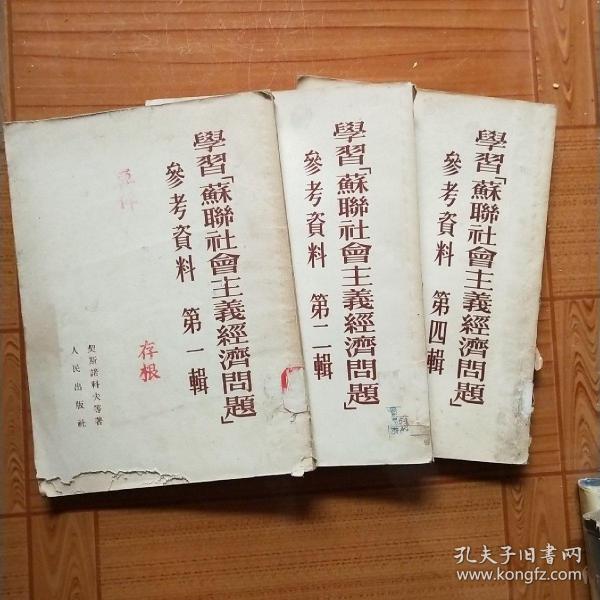 學習「蘇聯社會主義經濟問題」
參考資料 第一輯
契斯諾科夫等著
人民出版社
存根
學習「蘇聯社會主義經濟問題」
參考資料 第二輯
學習「蘇聯社會主義經濟問題」
參考資料 第四輯
孔夫子旧书网
www.kongfz.com